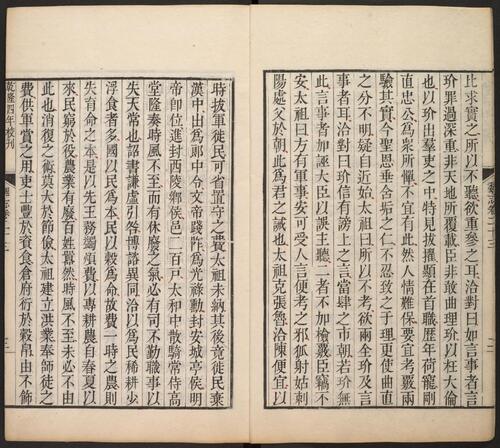 比求實之所以不聽欲重參之耳洽對曰如言事者言
玠罪過深重非天地所覆載臣非敢曲理玠以枉大倫
也以玠出羣吏之中特見拔擢顯在首職歷年荷寵剛
直忠公為衆所憚不宜有此然人情難保要宜考覈兩
驗其實今聖恩垂含垢之仁不忍致之于理更使曲直
之分不明疑自近始太祖曰所以不考欲兩全玠及言
事者耳洽對曰玠信有謗上之言當肆之市朝若玠無
此言事者加誣大臣以誤主聽二者不加檢覈臣竊不
安太祖曰方有軍事安可受人言便考之邪狐射姑刺
陽處父於朝此為君之誡也太祖克張魯洽陳便宜以
魏志卷二十三
時拔軍徙民可省置守之費太祖未納其後竟徙民棄
漢中出為郎中令文帝踐阼為光祿勳封安城亭侯明
帝即位進封西陵鄉侯邑二百戶太和中散騎常侍高
堂隆奏時風不至而有休廢之氣必有司不勤職事以
失天常也詔書謙虛引咎博諮異同洽以為民稀耕少
浮食者多國以民為本民以穀為命故費一時之農則
失育命之本是以先王務蠲煩費以專耕農自春夏以
來民窮於役農業有廢百姓嚻然時風不至未必不由
此也消復之術莫大於節儉太祖建立洪業奉師徒之
費供軍賞之用吏士豐於資食倉府衍於穀帛由不飾
乾隆四年校刊 魏志卷二十三